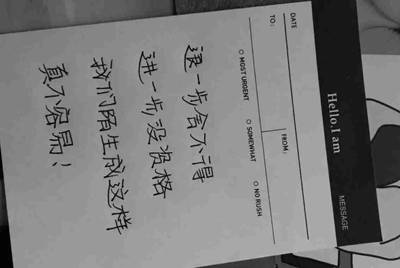 Hello, I am
MESSAGE
DATE
TO:
FROM:
MOST URGENT
SOMEWHAT
NO RUSH
退一步舍不得
进一步没资格
我们陌生成这样
真不容易！